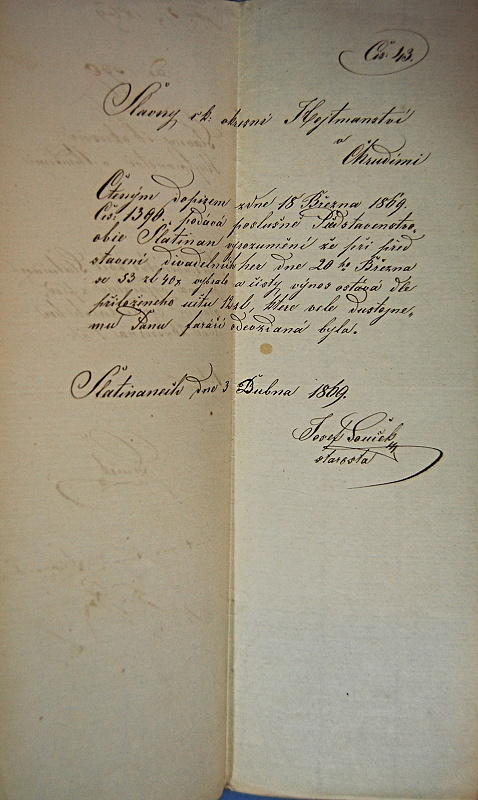 Čís. 43.
Slavný c. k. okresní Hejtmanství
v
Chrudimi
Čteným dopisem zdne 18 Března 1869.
Čís. 1390. podává poslušné Představenstvo
obce Slatinan vyrozumění že při před
stavení divadelních her dne 20 ho Března
se 53 zl 40x vybralo a čistý výnos ostává dle
přiloženého účtu zl, ktere vele dustojne,
mu Pánu faráři odevzdaná byla.
Slatinanech dne 3 Dubna 1869.
Josef
starosta